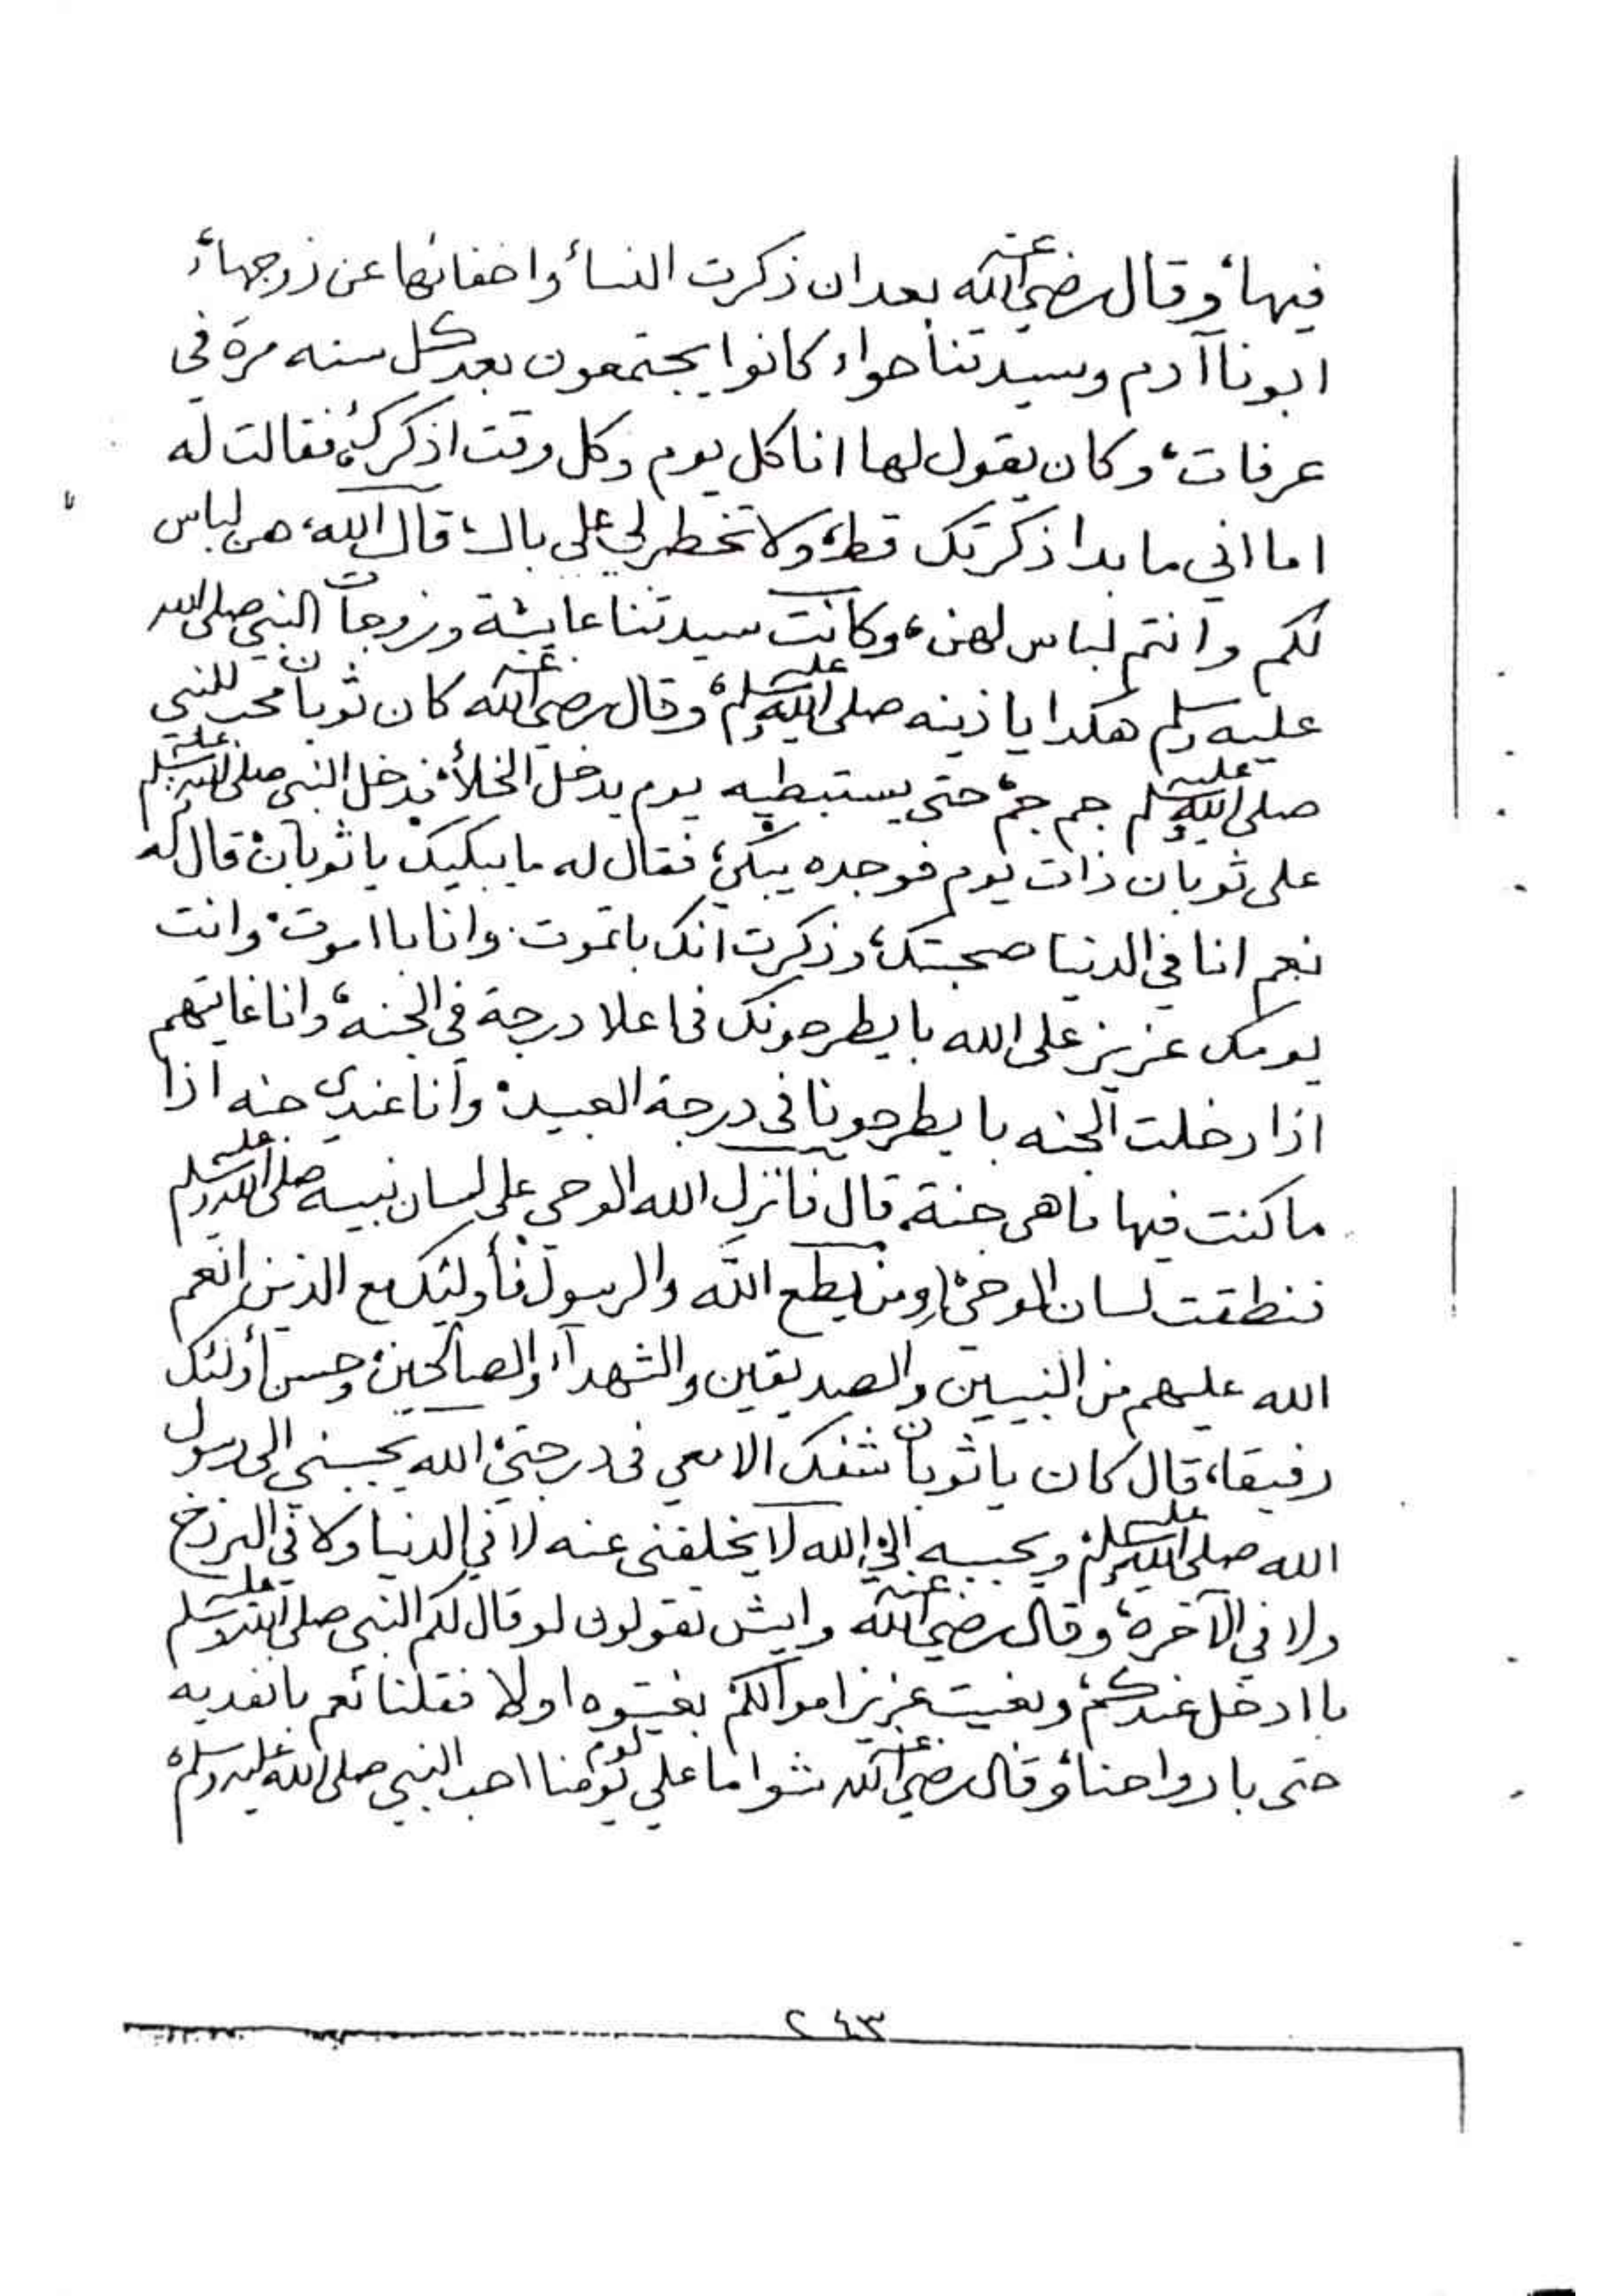 فيها، وقال رضي الله عنه بعد ان ذكرت النساء واخفائها عن زوجها،
ابونا آدم وسيدتنا حواء كانوا يجتمعون بعد كل سنه مرة في
عرفات، وكان يقول لها انا كل يوم وكل وقت اذكرك، فقالت له
اما اني ما بدا ذكرتك قط، ولا تخطر لي على بال، قال الله، هن لباس
لكم وانتم لباس لهن، وكانت سيدتنا عايشة وزوجات النبي صلى الله
عليه وسلم هكدا ياذينه صلى الله عليه وسلم، وقال رضي الله عنه كان ثوبان محب للنبي
صلى الله عليه وسلم جم جم، حتى يستبطيه يوم يدخل الخلأ، فدخل النبي صلى الله عليه وسلم
على ثوبان ذات يوم فوجده يبكي، فقال له ما يبكيك يا ثوبان، قال له
نعم انا في الدنيا صحبتك، وذكرت انك باتموت، وانا باا موت، وانت
يومك عزيز على الله بايطرحونك في اعلا درجة في الجنه، وانا غايتهم
اذا دخلت الجنه بايطرحونا في درجة العبيد، وانا عندي جنه اذا
ما كنت فيها ماهي جنة، قال فانزل الله الوحي على لسان نبيه صلى الله عليه وسلم
فنطقت لسان الوحي، ومن يطع الله والرسول فأولئك مع الذين انعم
الله عليهم من النبيين والصديقين والشهدآء والصالحين، وحسن أولئك
رفيقا، قال كان يا ثوبان شفك الا معي في درجتي، الله يحببني الى رسول
الله صلى الله عليه وسلم، ويحببه الي، الله لا يخلفني عنه لا في الدنيا ولا في البرزخ
ولا في الآخرة، وقال رضي الله عنه وايش تقولون لو قال لكم النبي صلى الله عليه وسلم
باا دخل عندكم، وبغيت عزيز اموالكم، بغيتوه اولا، فقلنا نعم بانفديه
حتى بارواحنا، وقال رضي الله عنه شوا ما علي لوم منا احب النبي صلى الله عليه وسلم
٢٤٣